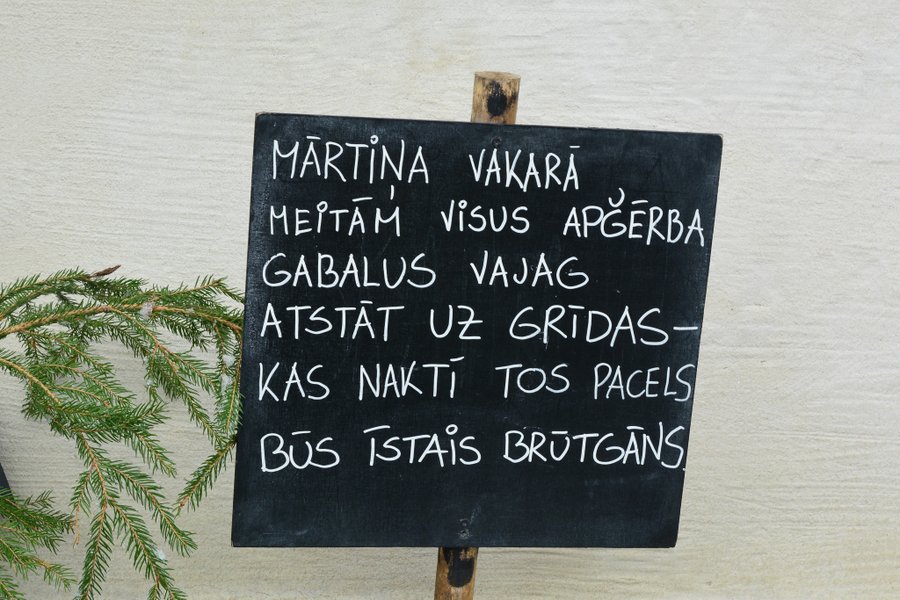 MĀRTIŅA VAKARĀ
MEITĀM VISUS APĞĒRBA
GABALUS VAJAG
ATSTĀT UZ GRĪDAS-
KAS NAKTĪ TOS PACELS
BŪS ĪSTAIS BRŪTGĀNS.